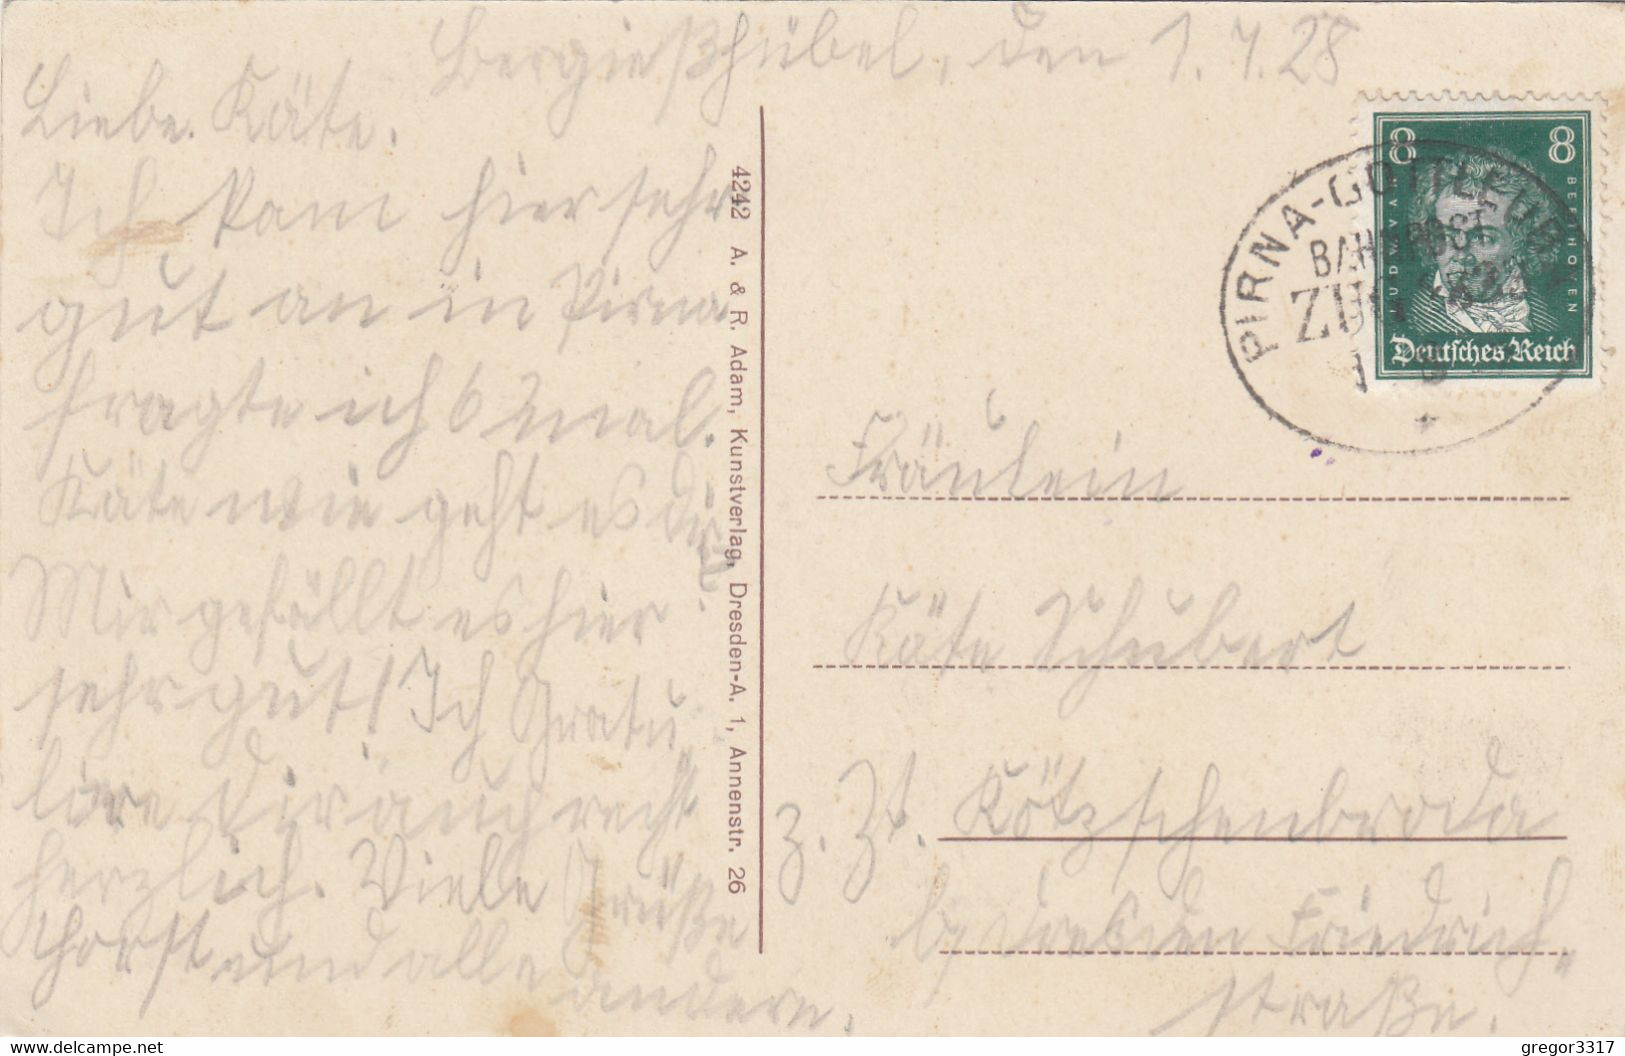 Bergießhübel, den 1.7.28
Liebe Käte.
Ich kam hier sehr
gut an in Pirna
fragte ich 6 mal.
Käte wie geht es dir?
Mir gefällt es hier
sehr gut! Ich Gratu
liere Dir auch recht
herzlich. Viele Grüße
Horst und alle
andere.
4242 A. & R. Adam, Kunstverlag, Dresden-A. 1, Annenstr. 26
8 8
BEETHOVEN
Deutsches Reich
PIRNA-GOTTLEUBA
BAHNPOST
ZUG
Fräulein
Käte Schubert
z. Zt. Kötzschenbroda
b/ Dresden Friedrich„
straße.
gregor3317
www.delcampe.net